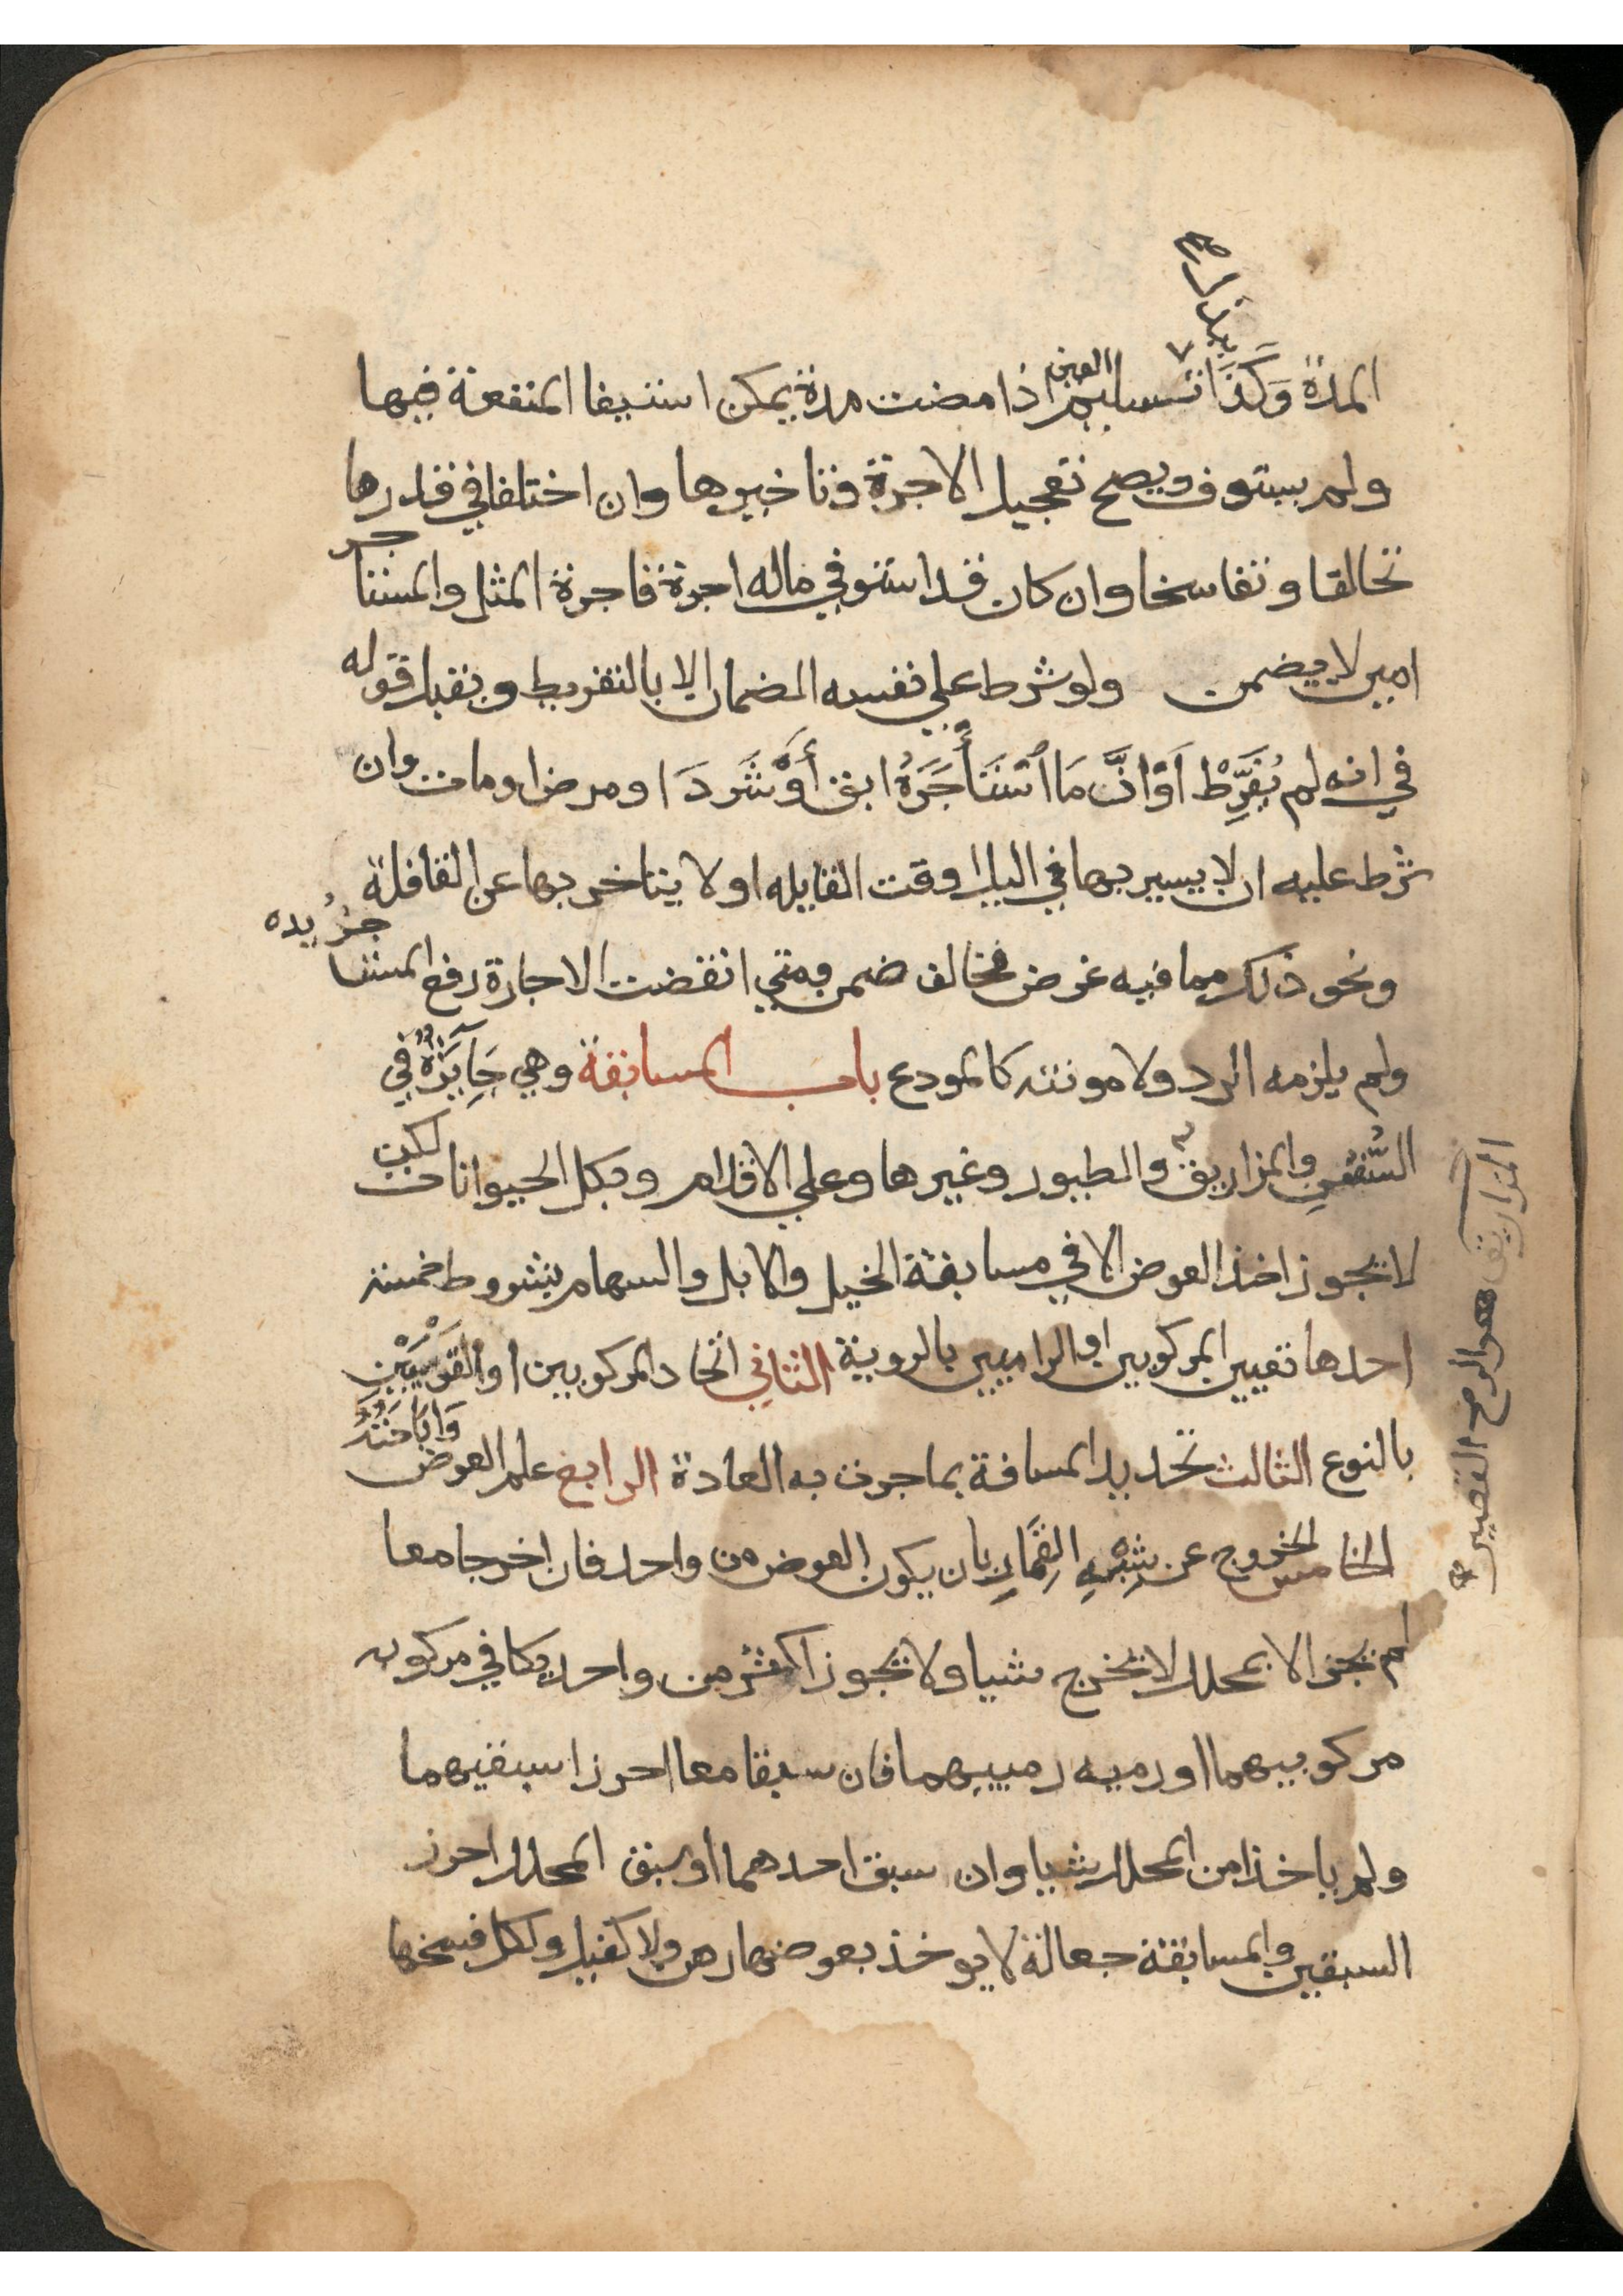 بذل
المدة وَكَذَا تسليم العين اذا مضت مدة يمكن استيفا المنفعة فيها
ولم يستوف ويصح تعجيل الاجرة وتاخيرها وان اختلفا في قدرها
تحالفا وتفاسخا وان كان قد استوفي ماله اجرة فاجرة المثل والمستاجر
امين لا يضمن ولو شرط علي نفسه الضمان الا بالتفريط ويقبل قوله
في انه لم يُفَرِّطْ اَوْ انَّ مَا اسْتَأجَرَهُ ابق أَوْ شَرَدَ او مرض او مات وان
شرط عليه ان لا يسير بها في الليل او وقت القايله او لا يتاخر بها عن القافلة
ونحو ذلك مما فيه غرض فخالف ضمن ومتي انقضت الاجارة رفع المستاجر يده
ولم يلزمه الرد ولا مونته كالمودع باب المسابقة وهي جَايَزةٌ في
السُّفُنِ والمزاريق والطيور وغيرها وعلي الاقدام وبكل الحيوانات لكن
لا يجوز اخذ العوض الا في مسابقة الخيل والابل والسهام بشروط خمسة
احدها تعيين المركوبين او الراميين بالروية الثاني اتحاد المركوبين او القَوْسَيْنِ
بالنوع الثالث تحديد المسافة بما جرت به العادة الرابع علم العوض وَابَاحَتُهُ
الخامس الخروج عن شِبْهِ القِمَارِ بان يكون العوض من واحد فان اخرجا معا
لم يجز الا بمحلل لا يخرج شيا ولا يجوز اكثر من واحد يكافي مركوبه
مركوبيهما او رميه رمييهما فان سبقا معا احرزا سبقيهما
ولم ياخذا من المحلل شيا وان سبق احدهما او سبق المحلل احرز
السبقين والمسابقة جعالة لا يوخذ بعوضها رهن ولا كفيل ولكل فسخها
المزاريق هو الرمح القصير